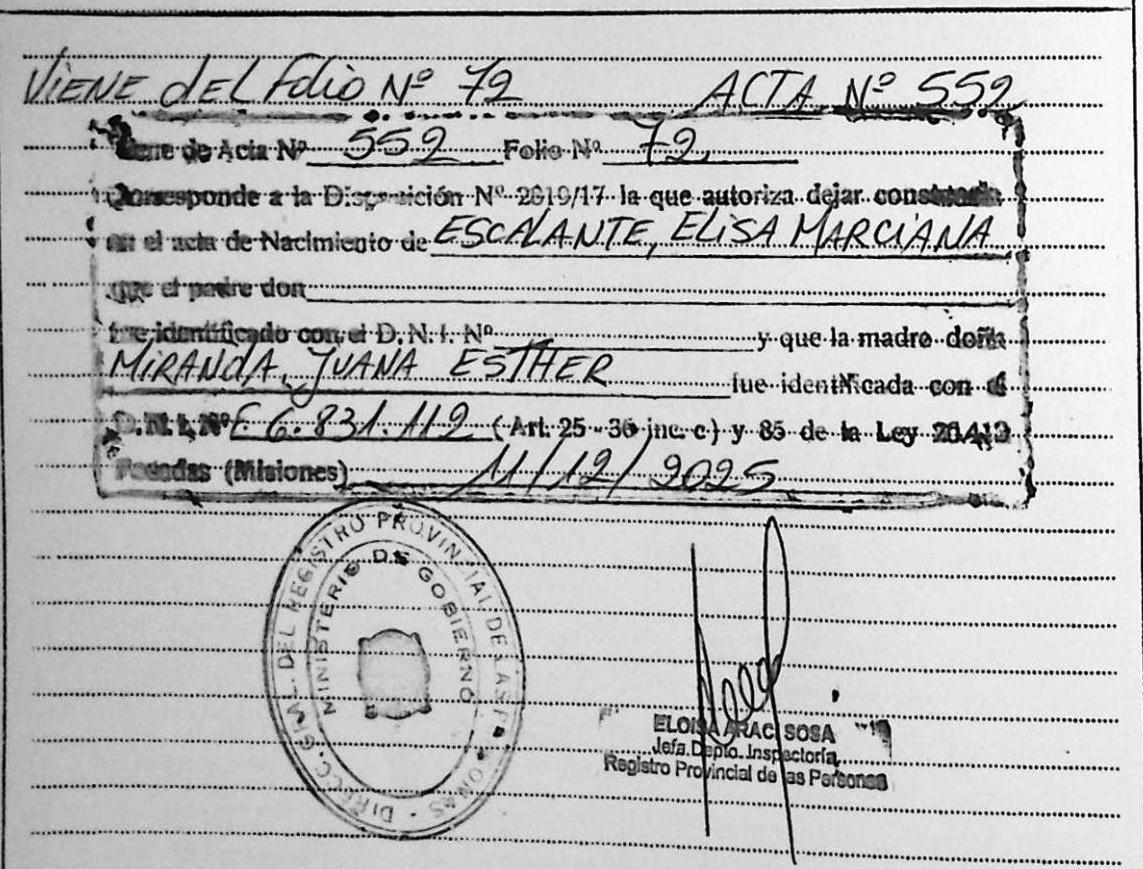 VIENE del Folio Nº 72 ACTA Nº 552
Viene de Acta Nº 552 Folio Nº 72
Corresponde a la Disposición Nº 2610/17 la que autoriza dejar constancia
en el acta de Nacimiento de ESCALANTE, ELISA MARCIANA
que el padre don
fue identificado con el D. N. I. Nº y que la madre doña
MIRANDA, JUANA ESTHER fue identificada con el
D. N. I. Nº F 6.831.112 (Art. 25 - 36 inc. c) y 85 de la Ley 26.413
Posadas (Misiones) 11/12/2025
DIRECC. GRAL. DEL REGISTRO PROVINCIAL DE LAS PERSONAS
MINISTERIO DE GOBIERNO
ELOISA ARACI SOSA
Jefa Depto. Inspectoría
Registro Provincial de las Personas